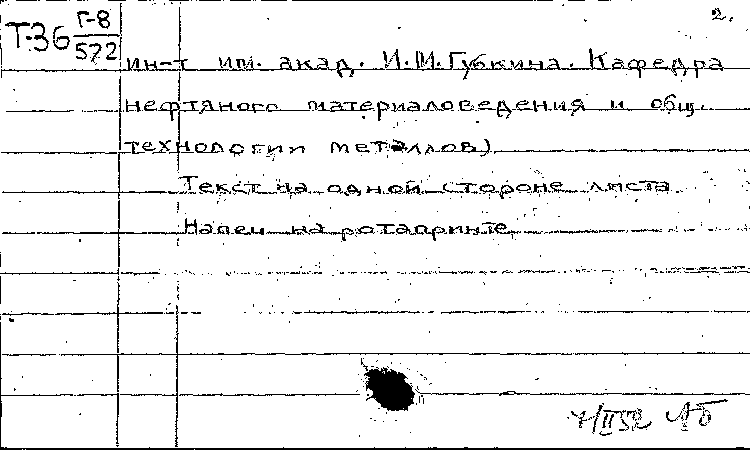 2.
Т-36 Г-8/572
ин-т им. акад. И.М.Губкина. Кафедра
нефтяного материаловедения и общ.
технологии металлов)
Текст на одной стороне листа
Напеч на ротапринте
7/II 52